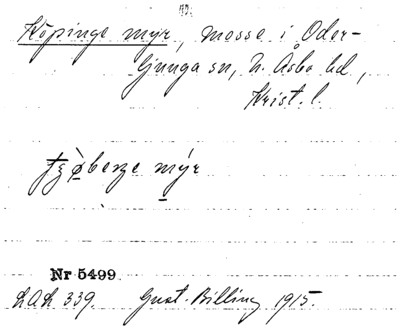 Köpinge myr, mosse i Oder-
ljunga sn, N. Åsbo hd,
Krist. l.
myr
Nr 5499
LAL 339. Gust. Billing 1915.